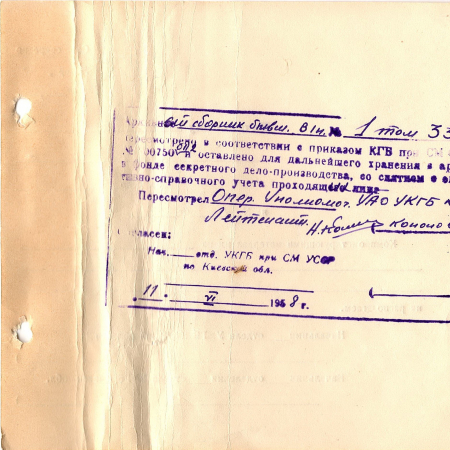 ый сборник № 1 том 33
пересмотрено в соответствии с приказом КГБ при СМ
№ 00750 и оставлено для дальнейшего хранения в
в фонде секретного дело-производства, со снятием с
справочного учета проходящ лица
Пересмотрел Опер. Уполномот. УАО УКГБ
Лейтенант
Согласен:
Нач. отд. УКГБ при СМ УССР
по Киевской обл.
11 VI 1958 г.